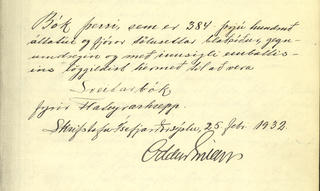 Bók þessi, sem er 384 þrjú hundruð
áttatíu og fjórar tölusettar blaðsíður, gegn-
umdregin og með innsigli embættis-
ins löggildist hérmeð til að vera
Sveitarbók
fyrir
Skrifstofu Ísafjarðarsýslu, 25. febr. 1932.